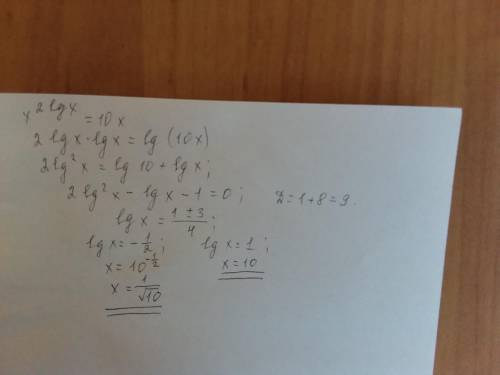 x^{2 lg x} = 10x
2 lg x · lg x = lg (10x)
2 lg² x = lg 10 + lg x;
2 lg² x - lg x - 1 = 0; D = 1 + 8 = 9.
lg x = \frac{1 ± 3}{4};
lg x = -\frac{1}{2}; lg x = 1;
x = 10^{-\frac{1}{2}} x = 10
x = \frac{1}{\sqrt{10}}